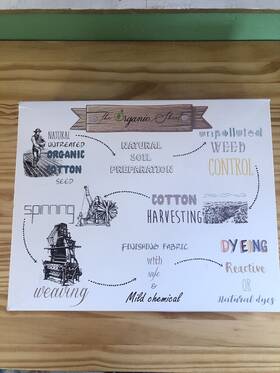 The Organic
NATURAL
UNTREATED
ORGANIC
COTTON
SEED
NATURAL
SOIL
PREPARATION
unpolluted
WEED
CONTROL
COTTON
HARVESTING
spinning
weaving
FINISHING FABRIC
with
&
Mild chemical
DYEING
Reactive
OR
Natural dyes